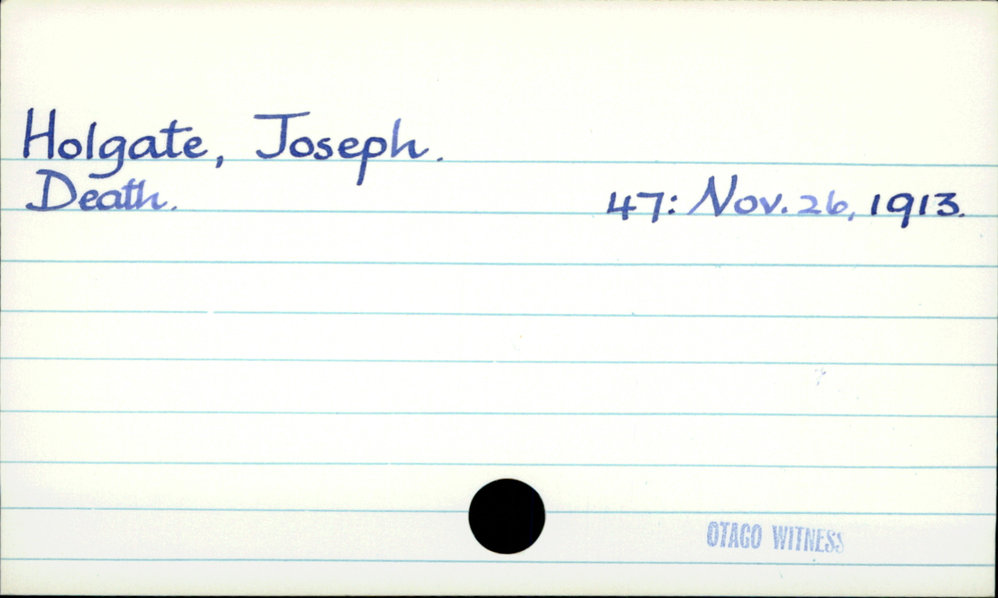 Holgate, Joseph.
Death. 47: Nov. 26, 1913.
OTAGO WITNESS